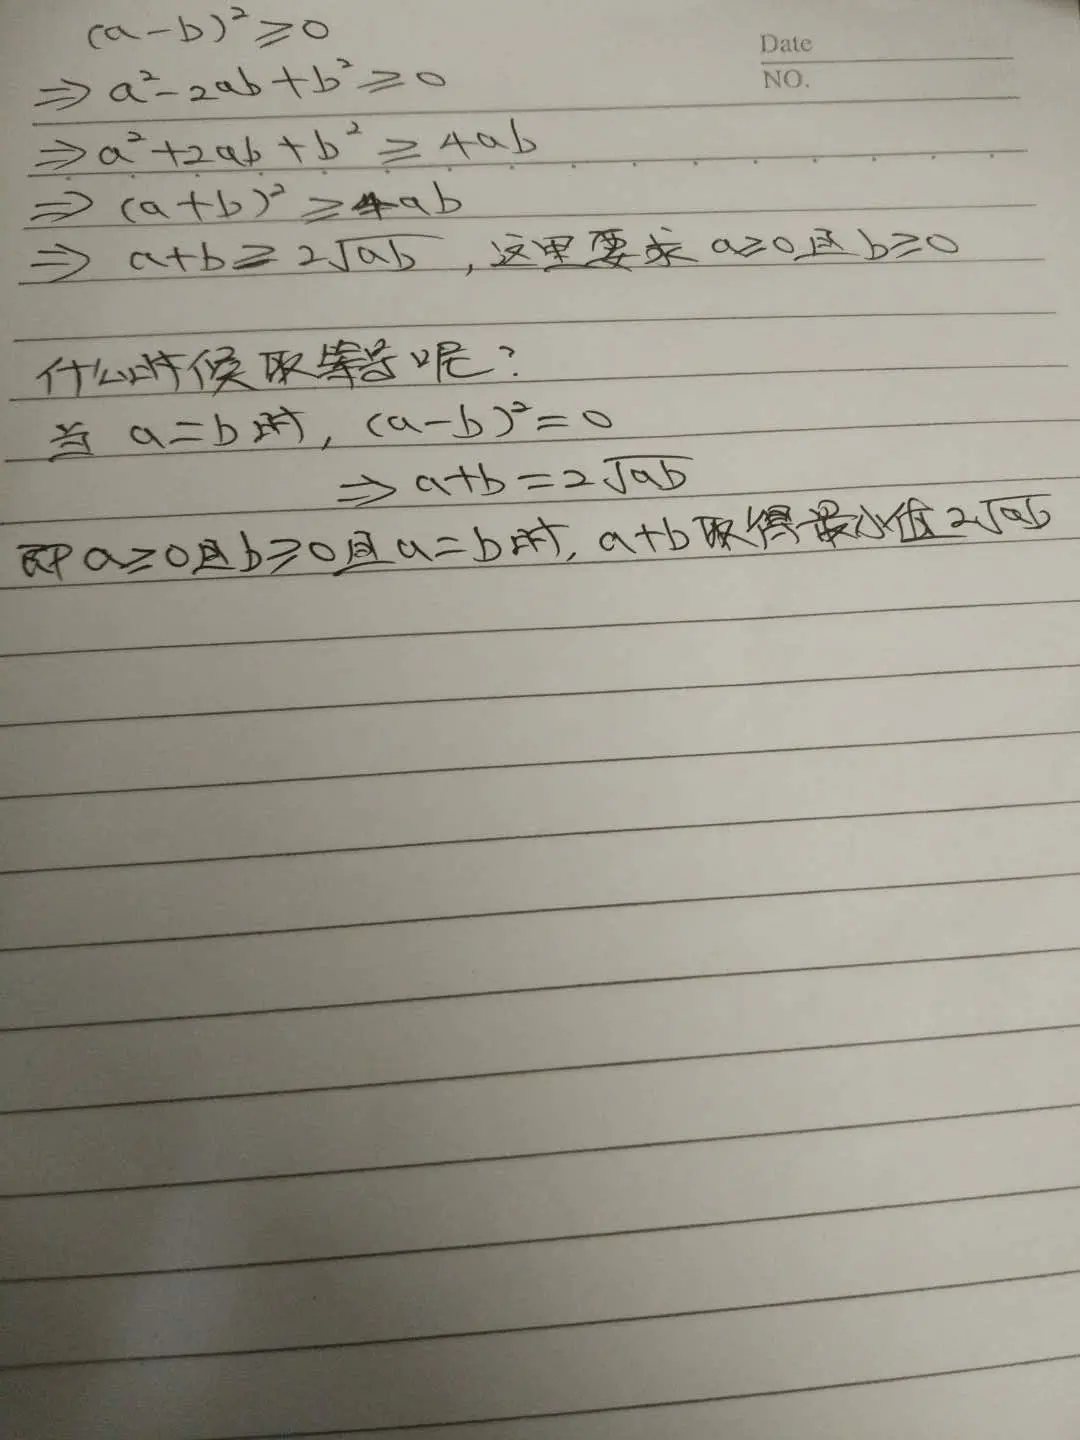 (a-b)²≥0
Date
⇒a²-2ab+b²≥0
NO.
⇒a²+2ab+b²≥4ab
⇒(a+b)²≥4ab
⇒a+b≥2√ab,这里要求a≥0且b≥0
什么时候取等号呢?
当a=b时,(a-b)²=0
⇒a+b=2√ab
即a≥0且b≥0且a=b时,a+b取得最小值2√ab